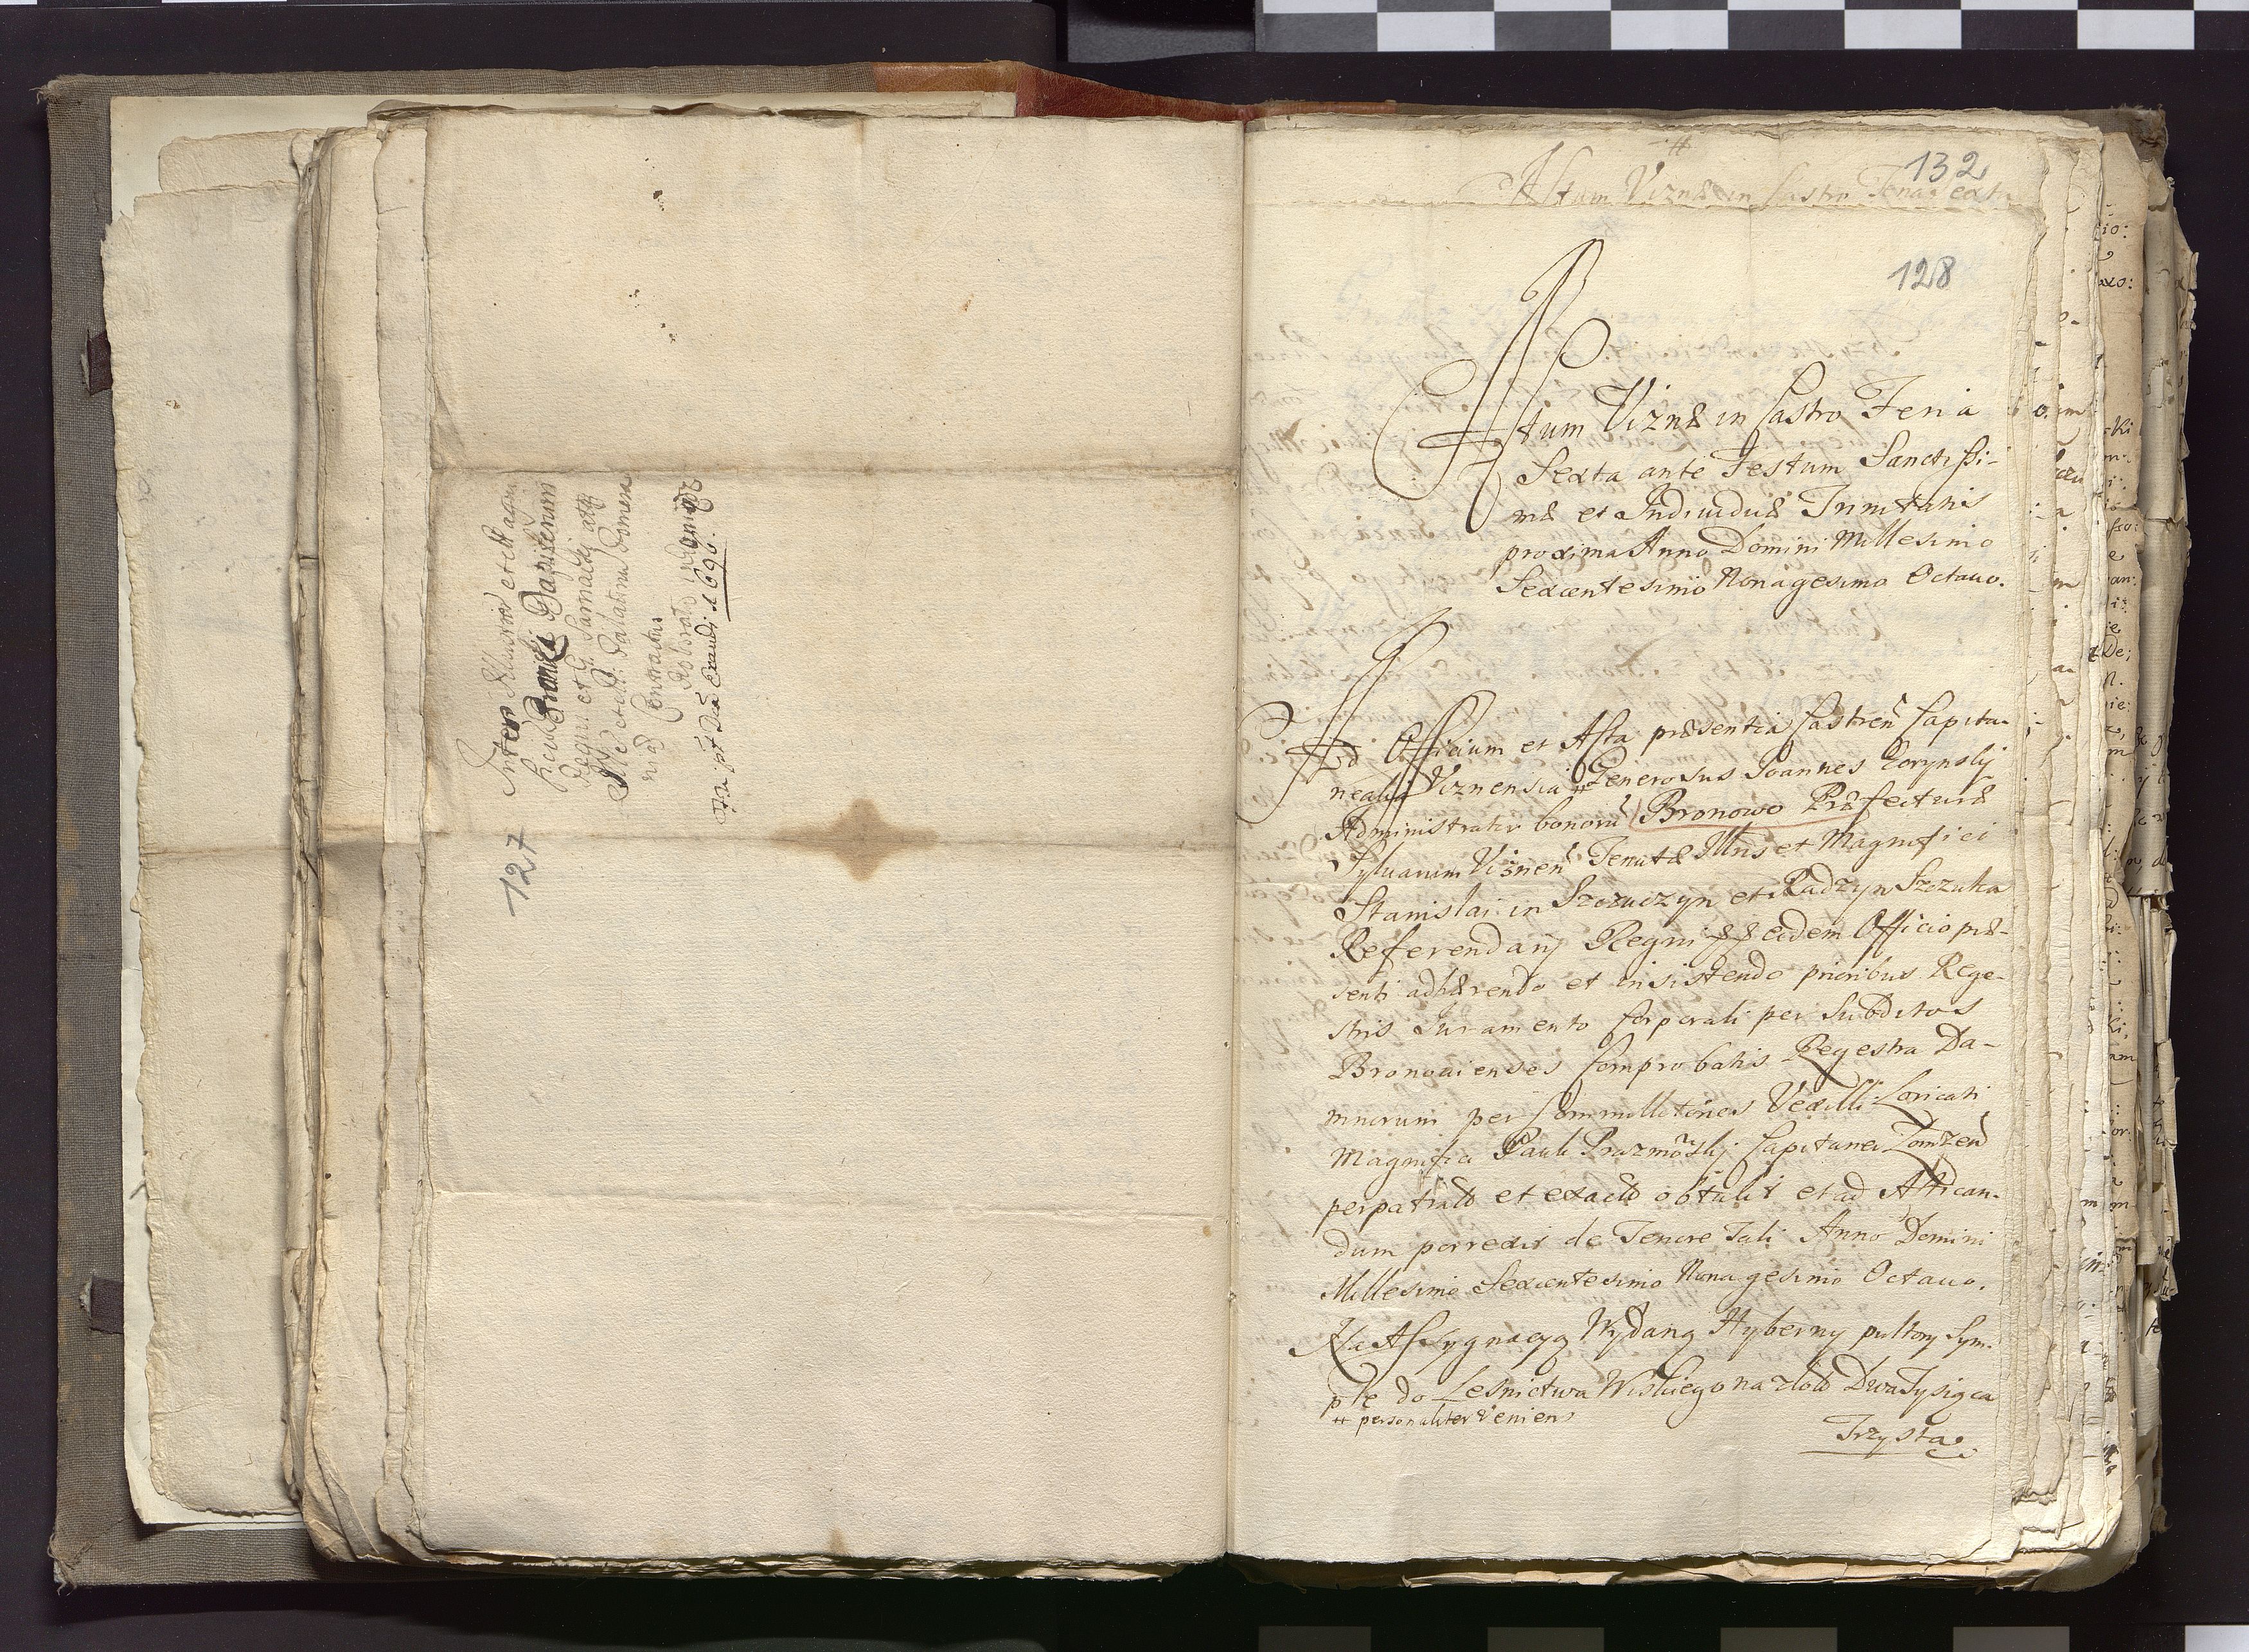 Inter Illustrem et
Branicki Dapiferum
Regni et G. Sarnacki
Palatinu Pomera
niæ
Contractus
Roboratio
Fria pt Dcā Exaudi 1690.
127
132
Actum Viznæ in Castro Feria sexta
128
Actum Viznæ in Castro Feria
Sexta ante Festum Sanctissi-
mæ et Indiuiduæ Trinitatis
proxima Anno Domini Millesimo
Sexcentesimo Nonagesimo Octauo.
Ad Officium et Acta præsentia Castren Capita-
nealia Viznensia # Generosus Joannes Gorynskj
Administrator bonorū Bronowo Præfecturæ
Syluarum Viznen Tenutæ Illris et Magnifici
Stanislai in Szczuczyn et Radzyn Szczuka
Referendarij Regni && eidem Officio præ-
senti adhærendo et insistendo prioribus Rege-
stris Juramento Corporali per Subditos
Bronouienses Comprobatis Regestra Da-
mnorum per Commilitones Vexilli Loricati
Magnifici Pauli Prazmowskj Capitanei Lomzen
perpetrata et exacta obtulit et ad Actican-
dum porrexit de Tenore Tali Anno Domini
Millesimo Sexcentesimo Nonagesimo Octauo.
Na Assygnacyą Wydaną Hyberny pułtory Sym-
ple do Lesnictwa Wiskiego na złoto Dwa Tysiąca
# personaliter veniens
Trzysta